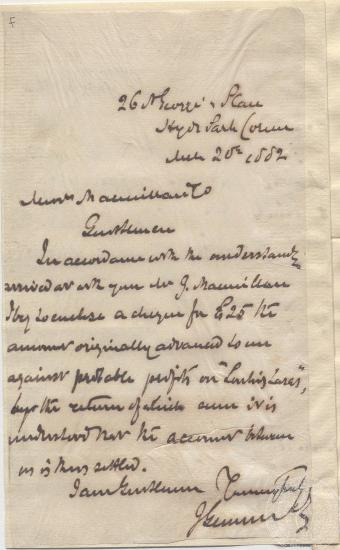 26 St George's Place
Hyde Park Corner
July 20th 1882
Messrs Macmillan & Co
Gentlemen
In accordance with the understanding
arrived at with your Mr G. Macmillan
I beg to enclose a cheque for £25 the
amount originally advanced to me
against probable profits on
by the return of which sum it is
understood that the account between
us is thus settled.
I am Gentlemen Yours truly